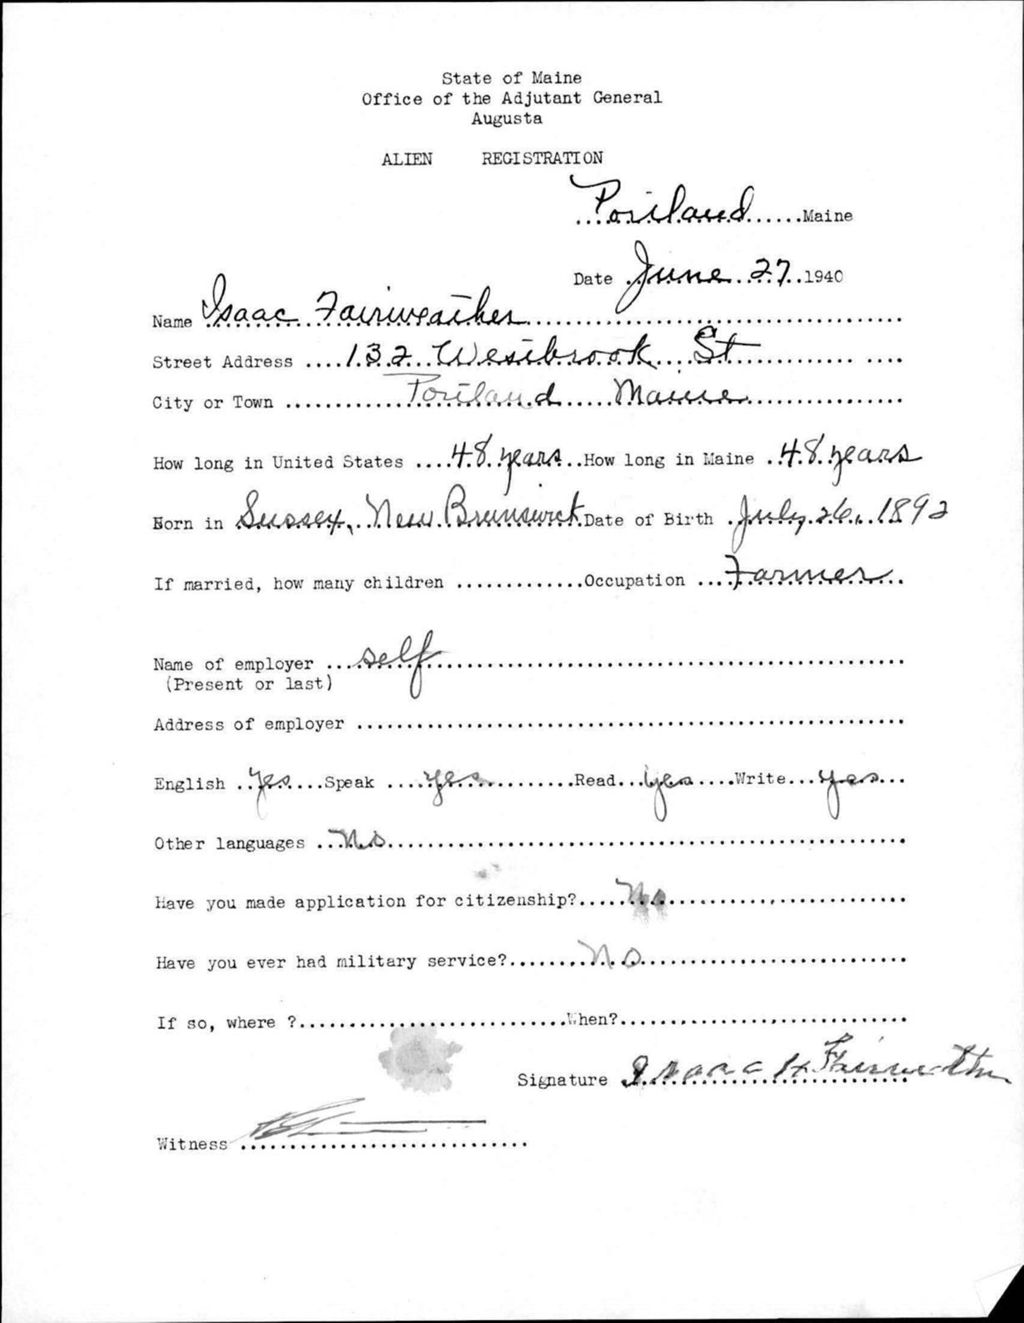 State of Maine
Office of the Adjutant General
Augusta
ALIEN REGISTRATION
Portland Maine
Date June 27 1940
Name Isaac Fairweather
Street Address 132 Westbrook St
City or Town Portland Maine
How long in United States 48 years How long in Maine 48 years
Born in Sussex, New Brunswick Date of Birth July 26, 1892
If married, how many children Occupation Farmer
Name of employer self
(Present or last)
Address of employer
English Yes Speak yes Read yes Write yes
Other languages No
Have you made application for citizenship? No
Have you ever had military service? No
If so, where ? When?
Signature Isaac H Fairweather
Witness